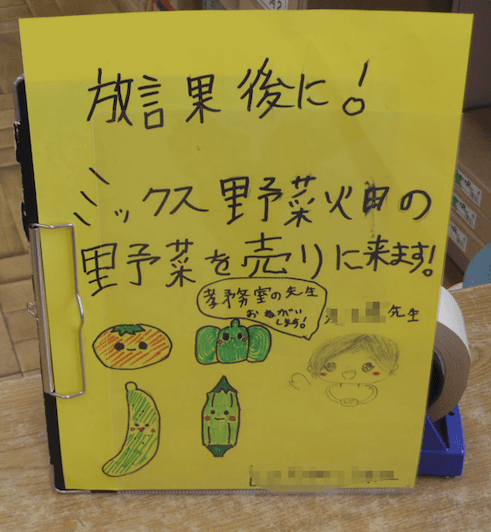 放言果後に!
ミックス野菜畑の
野菜を売りに来ます!
孝務室の先生
おねがい
します!
先生